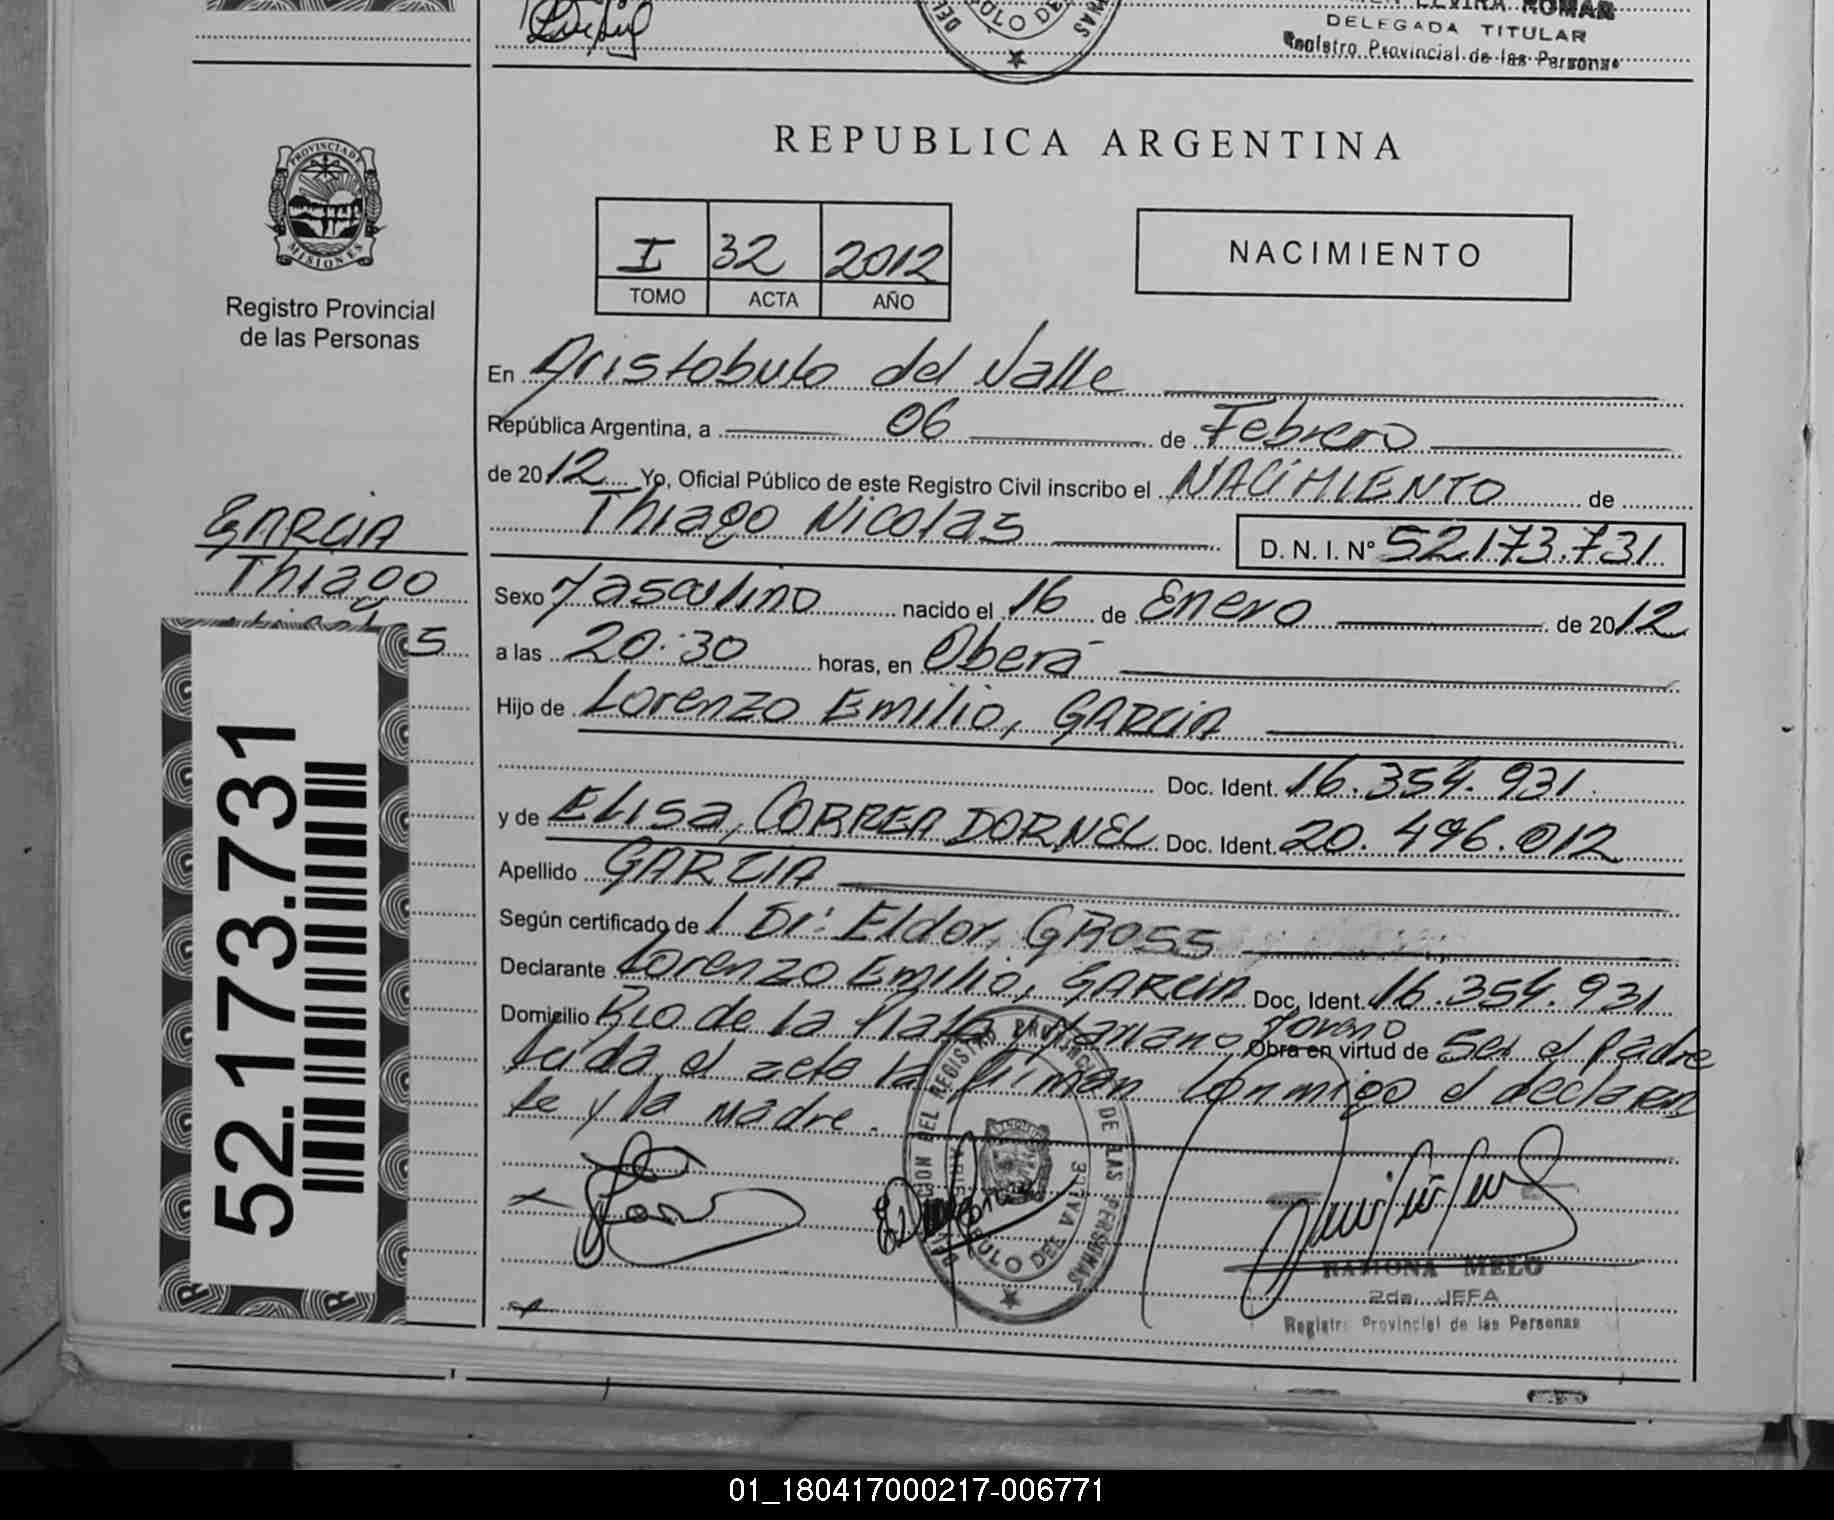 ELVIRA ROMAN
DELEGADA TITULAR
Registro Provincial de las Personas
PROVINCIA DE
MISIONES
Registro Provincial
de las Personas
REPUBLICA ARGENTINA
I 32 2012
TOMO ACTA AÑO
NACIMIENTO
En Aristobulo del Valle
República Argentina, a 06 de Febrero
de 2012 Yo, Oficial Público de este Registro Civil inscribo el NACIMIENTO de
Thiago Nicolas D. N. I. Nº 52.173.731
GARCIA
Thiago
Sexo Masculino nacido el 16 de Enero de 2012
a las 20:30 horas, en Oberá
Hijo de Lorenzo Emilio, GARCIA
Doc. Ident. 16.354.931
y de ELISA, CORREA DORNEL Doc. Ident. 20.496.012
Apellido GARCIA
Según certificado de 1 Dr: Eldor, GROSS
Declarante Lorenzo Emilio, GARCIA Doc. Ident. 16.354.931
Domicilio Rio de la Plata y Mariano Moreno Obra en virtud de ser el padre
Leida el acta la firman conmigo el declaran
te y la madre.
52.173.731
REGISTRO PROVINCIAL DE LAS PERSONAS
RAMONA MELO
2da. JEFA
Registro Provincial de las Personas
01_180417000217-006771